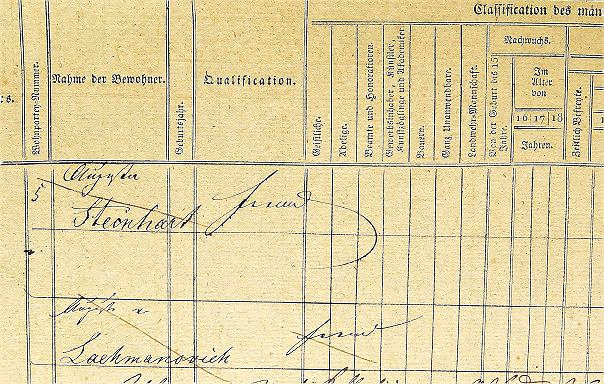 Classification des män
: s.
Wohnpartey-Nummer.
Nahme der Bewohner.
Geburtsjahr.
Qualification.
Geistliche.
Adelige.
Beamte und Honoratioren.
Gewerbsinhaber, Künstler, Kunstzöglinge und Akademiker
Bauern.
Ganz Unanwendbare.
Landwehr-Mannschaft.
Nachwuchs.
Von der Geburt bis 15 Jahre.
Im Alter von
16 17 18
Jahren.
Zeitlich Befreyte.
5
Augusta
Steinhart
fremd
Lachmanovich
fremd